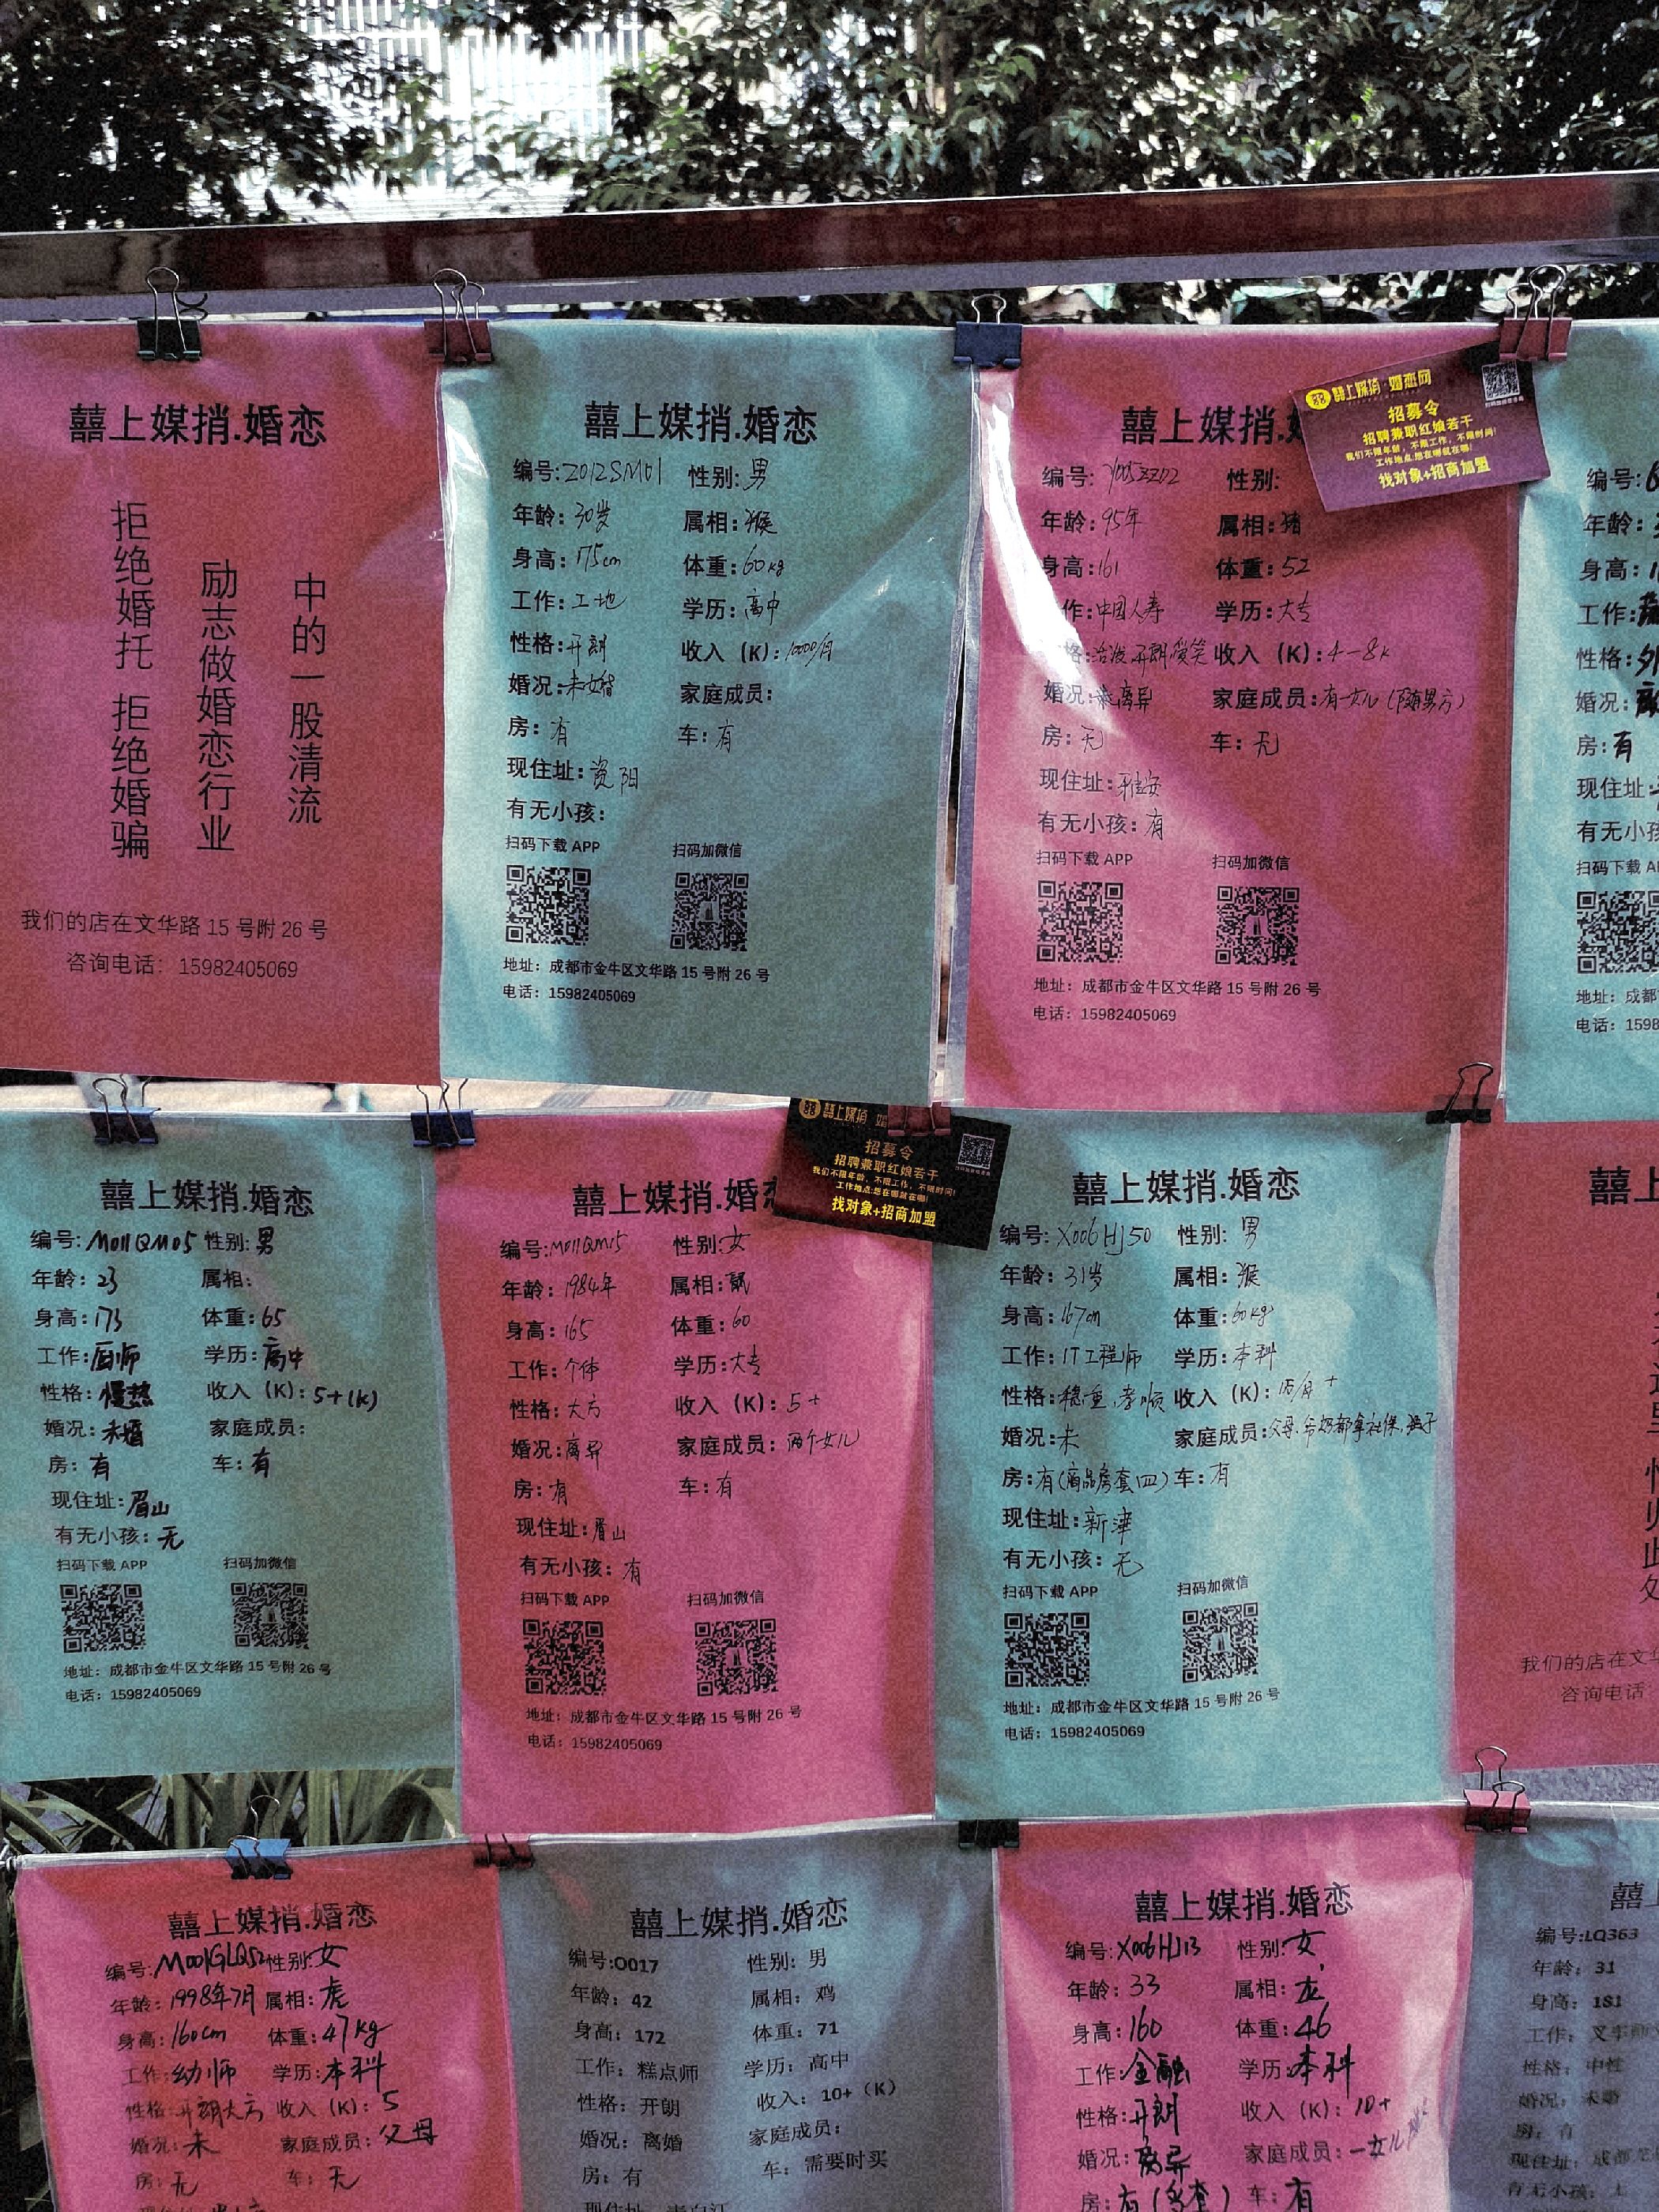 囍上媒捎.婚恋
拒绝婚托 拒绝婚骗
励志做婚恋行业
中的一股清流
我们的店在文华路 15 号附 26 号
咨询电话：15982405069
囍上媒捎.婚恋
编号:Z012SM01 性别:男
年龄:30岁 属相:猴
身高:175cm 体重:60kg
工作:工地 学历:高中
性格:开朗 收入（K）:10000/月
婚况:未婚 家庭成员:
房:有 车:有
现住址:资阳
有无小孩:
扫码下载 APP 扫码加微信
地址：成都市金牛区文华路 15 号附 26 号
电话：15982405069
囍上媒捎.
编号: 性别:
年龄:95年 属相:猪
身高:161 体重:52
作:中国人寿 学历:大专
格:活泼开朗爱笑 收入（K）:4-8K
婚况:离异 家庭成员:有一女儿
房:无 车:无
现住址:雅安
有无小孩:有
扫码下载 APP 扫码加微信
地址：成都市金牛区文华路 15 号附 26 号
电话：15982405069
囍上媒捎 婚恋网
招募令
招聘兼职红娘若干
我们不限年龄，不限工作，不限时间!
工作地点:想在哪就在哪!
找对象+招商加盟
编号:
年龄:
身高:
工作:
性格:外
婚况:
房:有
现住址:
有无小孩
扫码下载
地址：成都
电话：1598
囍上媒捎.婚恋
编号:M011QM05 性别:男
年龄:23 属相:
身高:173 体重:65
工作:厨师 学历:高中
性格:慢热 收入（K）:5+(K)
婚况:未婚 家庭成员:
房:有 车:有
现住址:眉山
有无小孩:无
扫码下载 APP 扫码加微信
地址：成都市金牛区文华路 15 号附 26 号
电话：15982405069
囍上媒捎.婚
编号:M011QM15 性别:女
年龄:1984年 属相:鼠
身高:165 体重:60
工作:个体 学历:大专
性格:大方 收入（K）:5+
婚况:离异 家庭成员:两个女儿
房:有 车:有
现住址:眉山
有无小孩:有
扫码下载 APP 扫码加微信
地址：成都市金牛区文华路 15 号附 26 号
电话：15982405069
囍上媒捎
招募令
招聘兼职红娘若干
我们不限年龄，不限工作，不限时间!
工作地点:想在哪就在哪!
找对象+招商加盟
囍上媒捎.婚恋
编号:X006HJ50 性别:男
年龄:31岁 属相:猴
身高:167cm 体重:60kg
工作:IT工程师 学历:本科
性格:稳重,孝顺 收入（K）:1万/月+
婚况:未 家庭成员:父母.爷奶都拿社保,
房:有(商品房套四) 车:有
现住址:新津
有无小孩:无
扫码下载 APP 扫码加微信
地址：成都市金牛区文华路 15 号附 26 号
电话：15982405069
囍上
我们的店在文华
咨询电话
囍上媒捎.婚恋
编号:M001GLQ52 性别:女
年龄:1998年7月 属相:虎
身高:160cm 体重:47kg
工作:幼师 学历:本科
性格:开朗大方 收入（K）:5
婚况:未 家庭成员:父母
房:无 车:无
囍上媒捎.婚恋
编号:0017 性别：男
年龄：42 属相：鸡
身高：172 体重：71
工作：糕点师 学历：高中
性格：开朗 收入：10+（K）
婚况：离婚 家庭成员：
房：有 车：需要时买
现住址：青白江
囍上媒捎.婚恋
编号:X006HJ13 性别:女
年龄:33 属相:龙
身高:160 体重:46
工作:金融 学历:本科
性格:开朗 收入（K）:10+
婚况:离异 家庭成员:一女儿
房:有(多套) 车:有
囍上
编号:LQ363
年龄：31
身高：181
工作：叉车
性格：中性
婚况：未婚
房：有
现住址：成都
有无小孩：